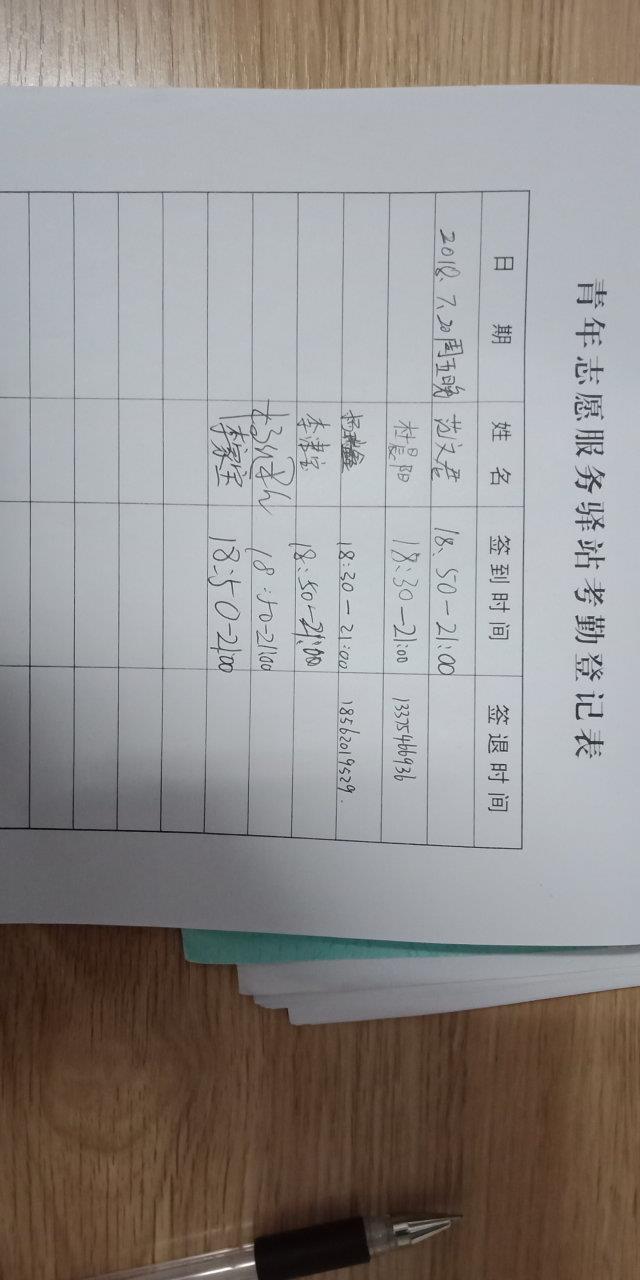 青年志愿服务驿站考勤登记表
日期 姓名 签到时间 签退时间
2018.7.20周五晚 范文君 18:50-21:00
杜晨阳 18:30-21:00 13375466936
18:30-21:00 18562019529.
李津宝 18:50-21:00
18:50-21:00
李家宝 18:50-21:00